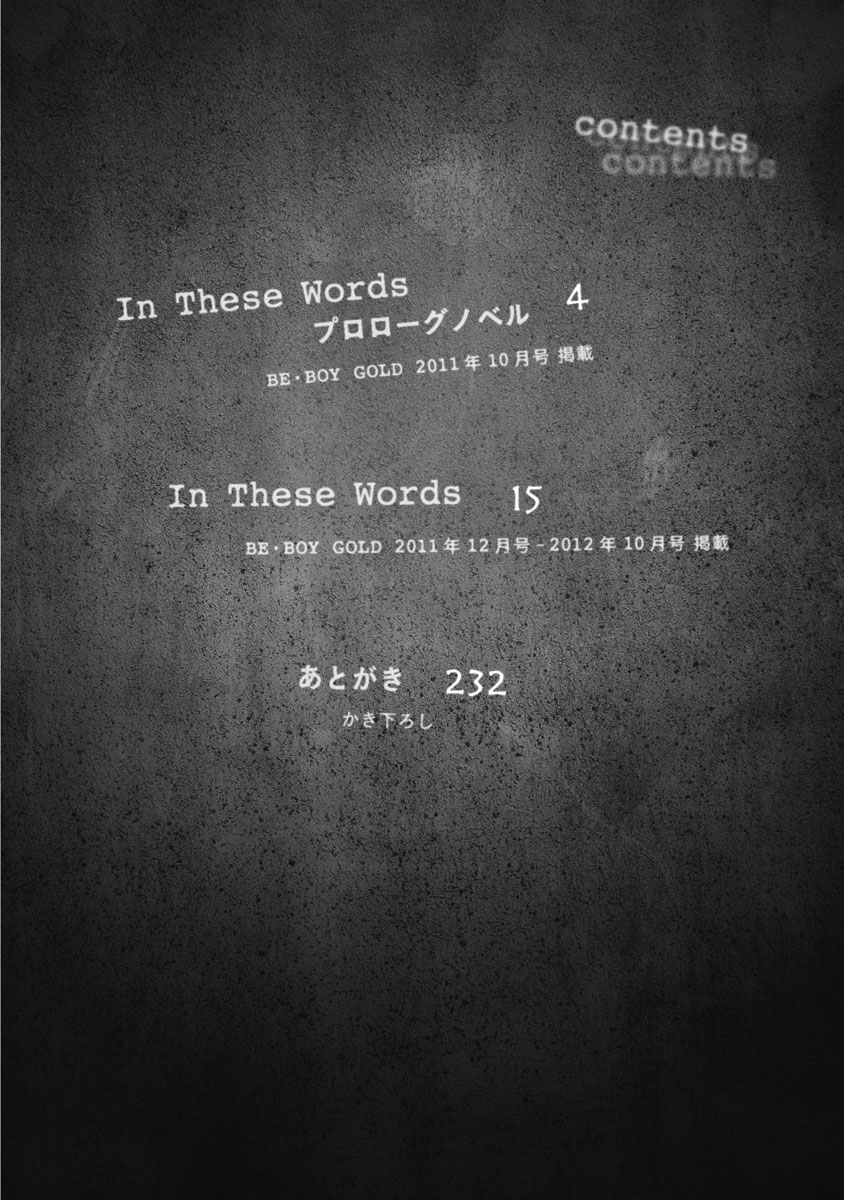 contents
contents
In These Words
プロローグノベル 4
BE・BOY GOLD 2011年10月号 掲載
In These Words 15
BE・BOY GOLD 2011年12月号-2012年10月号 掲載
あとがき 232
かき下ろし